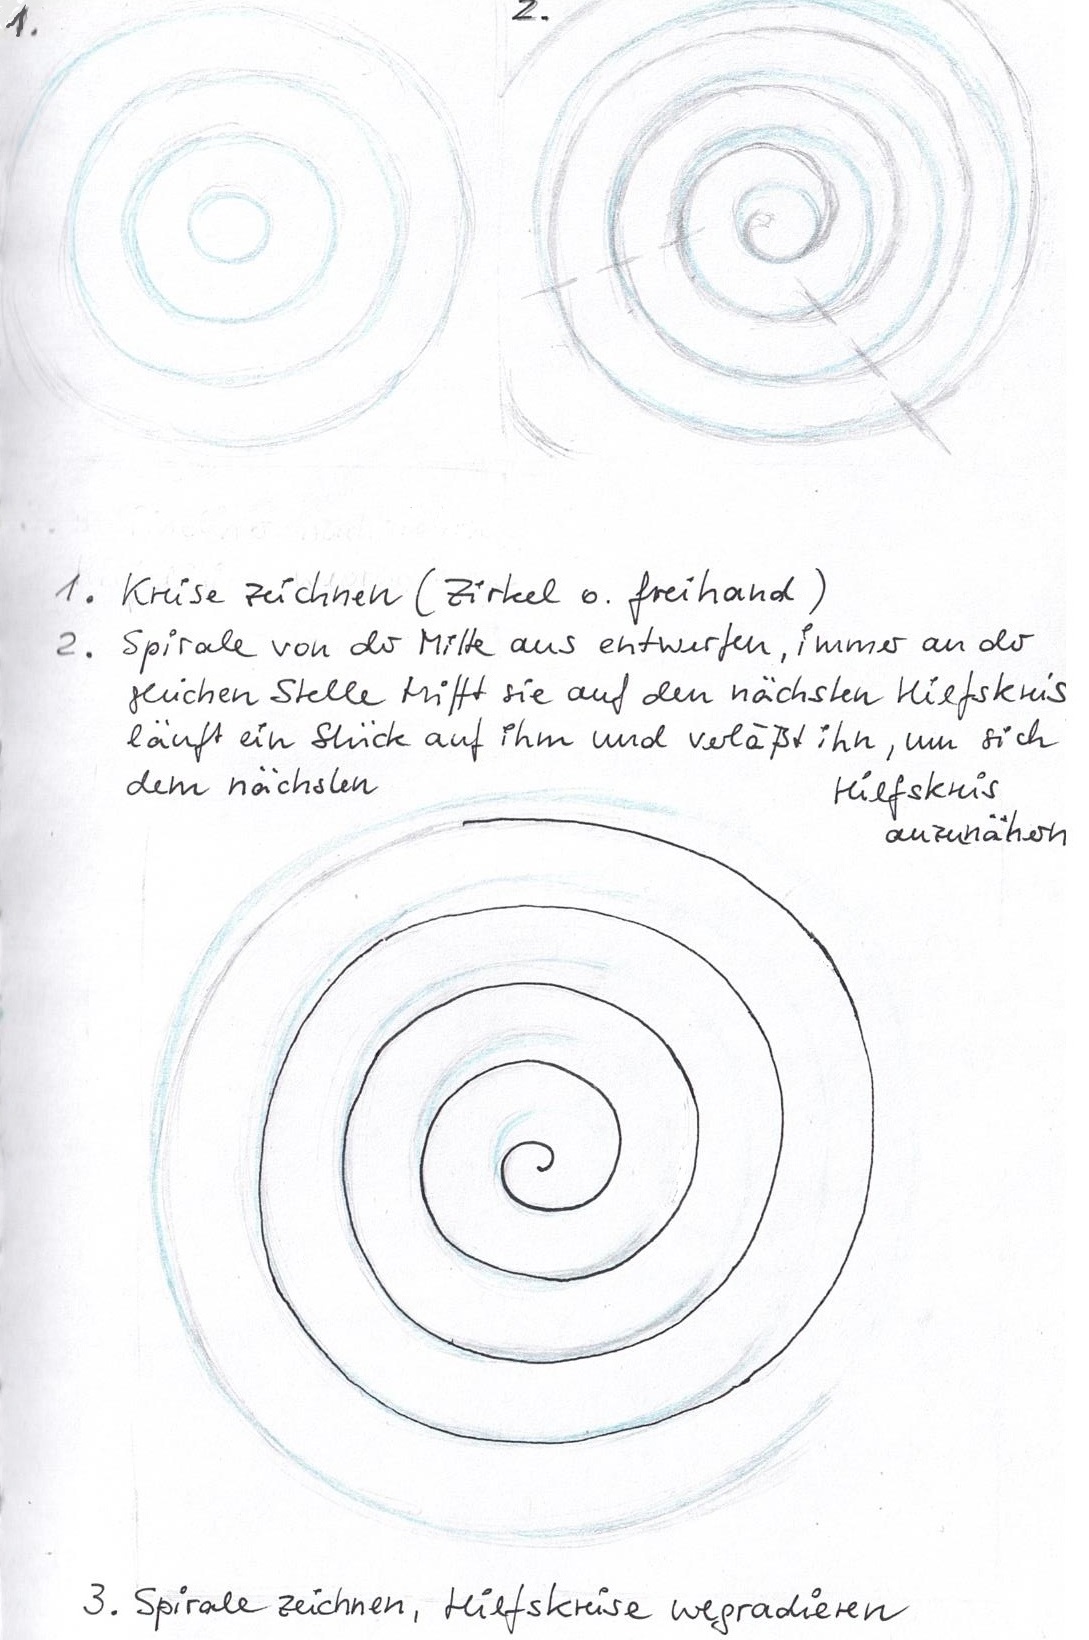 1.
2.
1. Kreise zeichnen (Zirkel o. freihand)
2. Spirale von der Mitte aus entwerfen, immer an der
gleichen Stelle trifft sie auf den nächsten Hilfskreis
läuft ein Stück auf ihm und verläßt ihn, um sich
dem nächsten Hilfskreis
anzunähern
3. Spirale zeichnen, Hilfskreise wegradieren